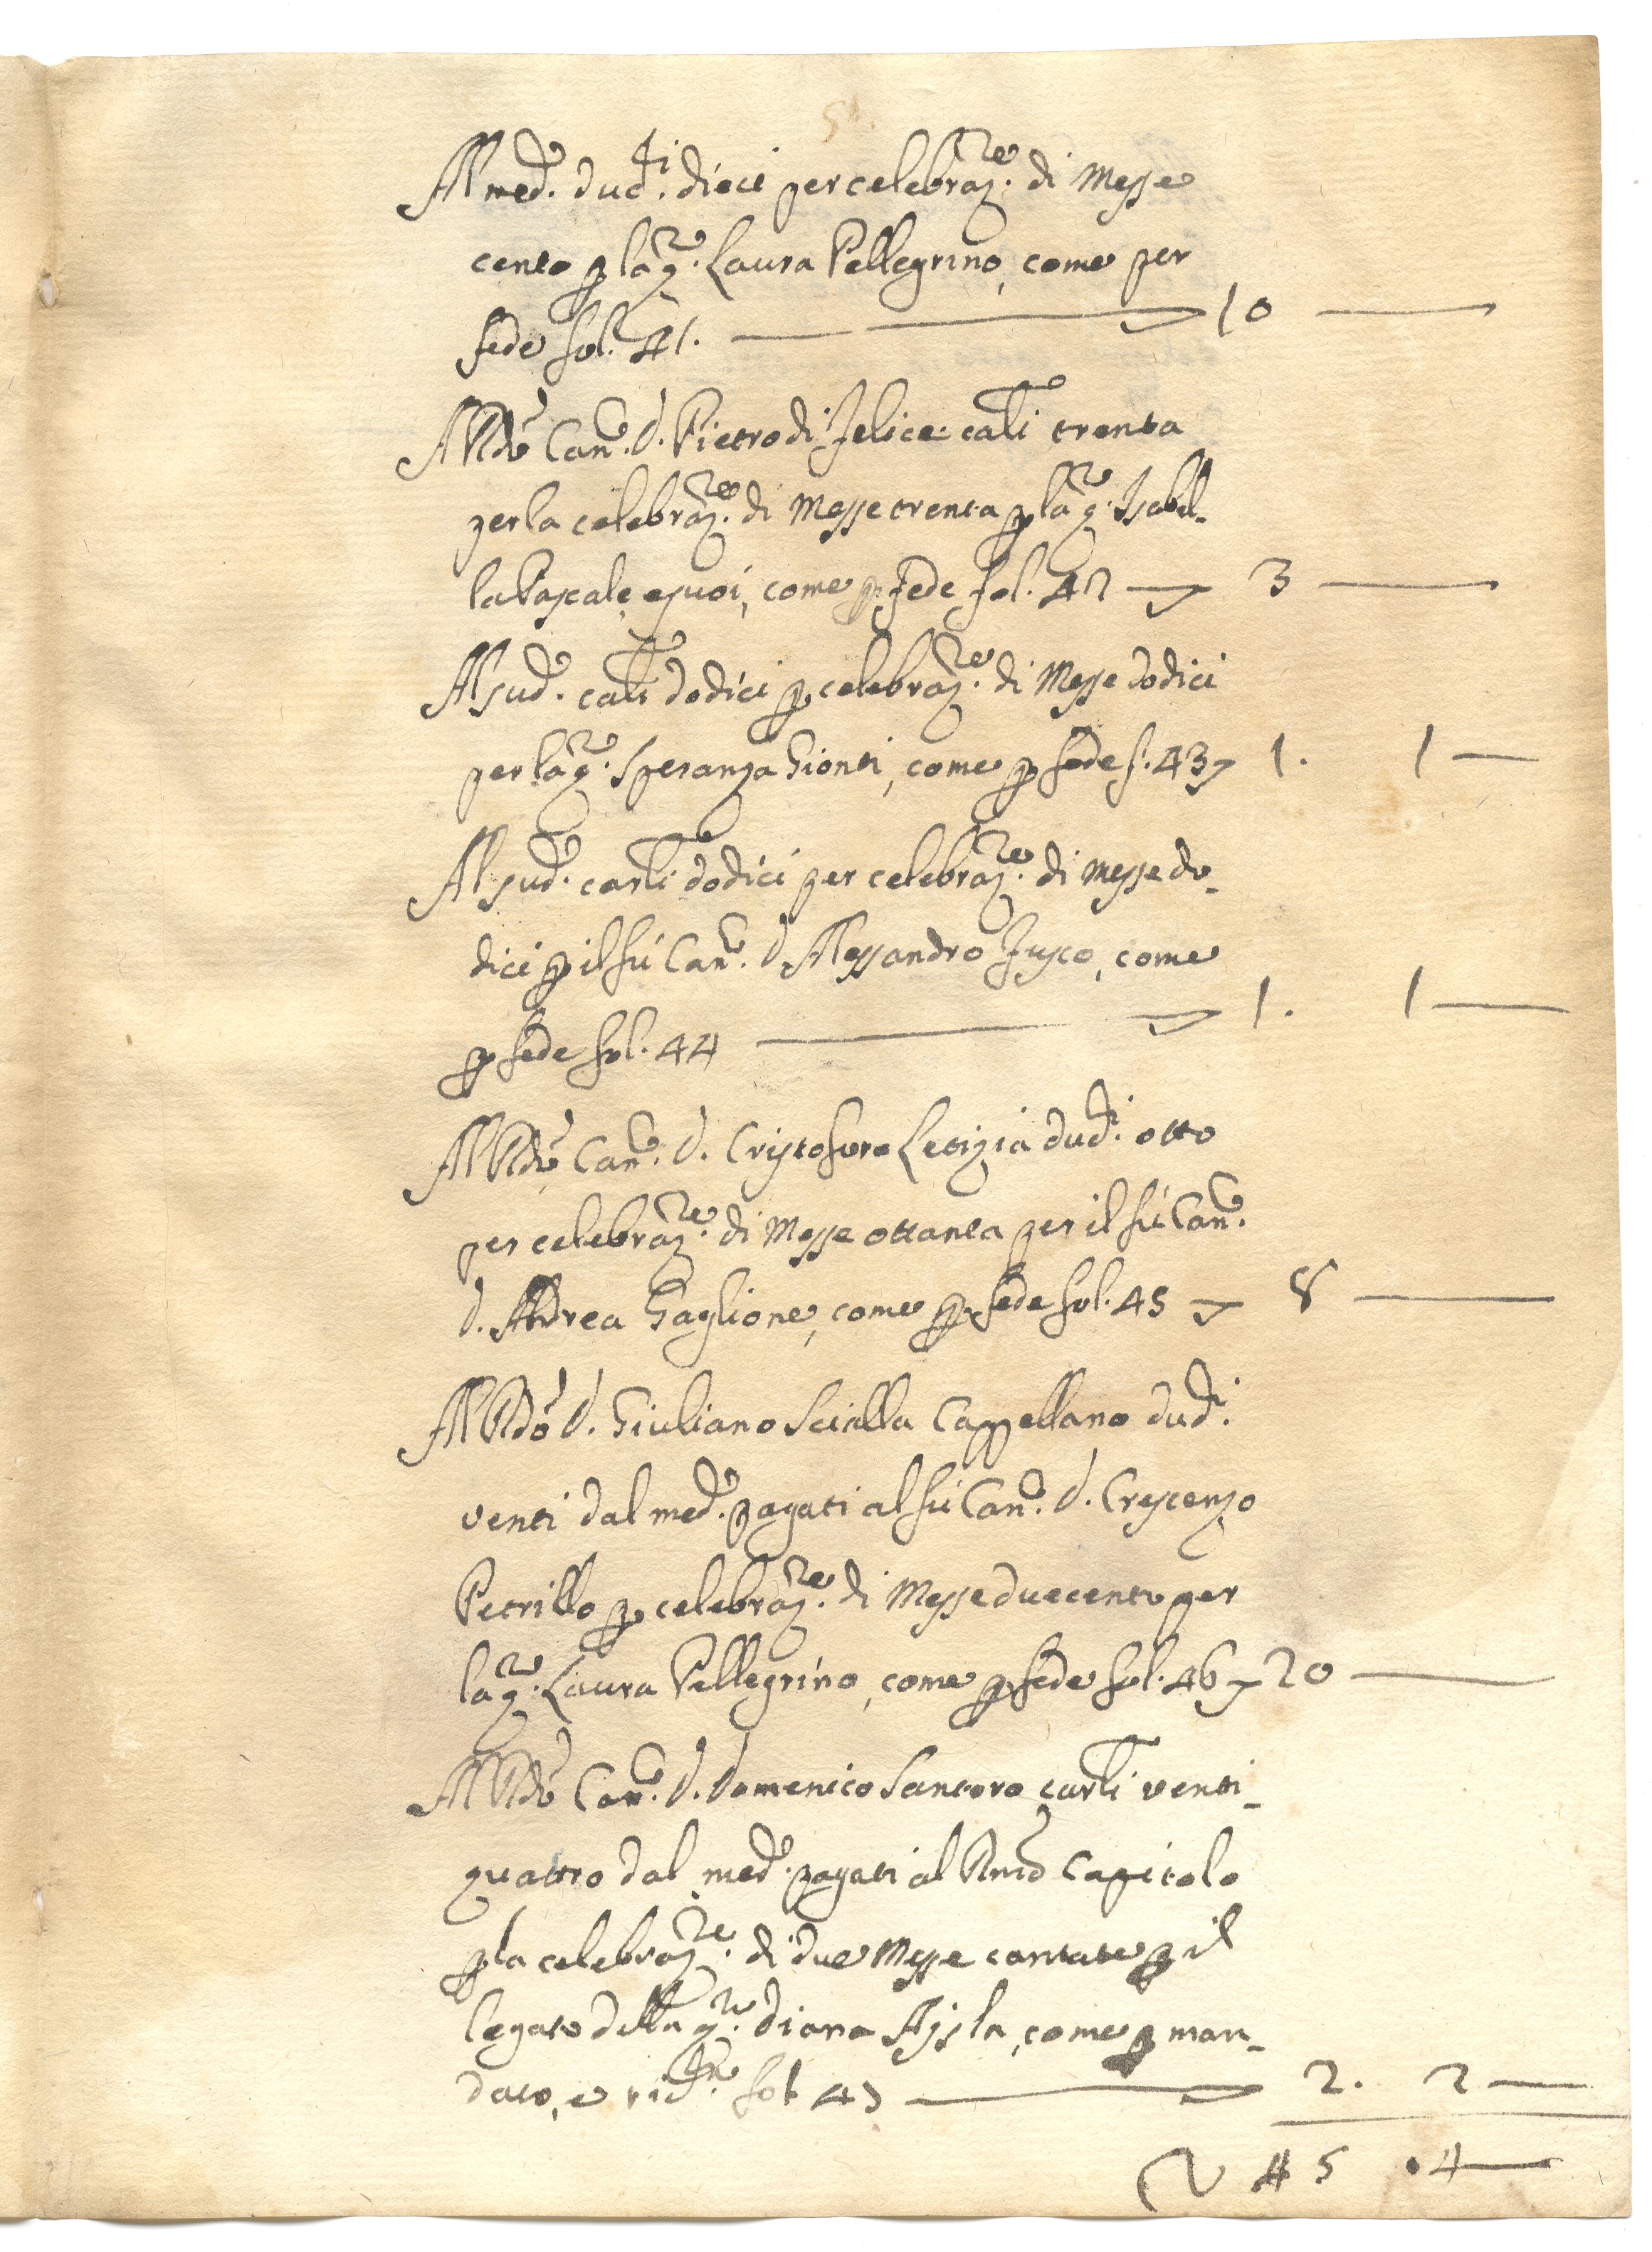 Al med.º duc.ti dieci per celebraz.ne di Messe
cento p la q.m Laura Pellegrino, come per
fede fol. 41. 10
Al Rdo Can.co d. Pietro di Felice carli trenta
per la celebraz.ne di Messe trenta p la q.m Isabel-
la Pascale, e suoi, come p fede fol. 42 3
Al sud.o carli dodici p celebraz.ne di Messe dodici
per la q.m Speranza Gionti, come p fede f. 43 1. 1
Al sud.o carli dodici per celebraz.ne di Messe do-
dici p il fù Can.co d. Alessandro Fusco, come
p fede fol. 44 1. 1
Al Rdo Can.co d. Cristofero Letizia duc.ti otto
per celebraz.ne di Messe ottanta per il fù Can.co
d. Andrea Gaglione, come p fede fol. 45 8
Al Rdo d. Giuliano Scialla Cappellano duc.ti
venti dal med.o pagati al fù Can.co d. Crescenzo
Petrillo p celebraz.ne di Messe duecento per
la q.m Laura Pellegrino, come p fede fol. 46 20
Al Rdo Can.co d. Domenico Santoro carli venti-
quattro dal med.o pagati al Rmo Capitolo
p la celebraz.ne di due Messe cantate p il
legato della q.m Diana Ajsla, come p man-
dato, e fol. 47 2. 2
45 .4